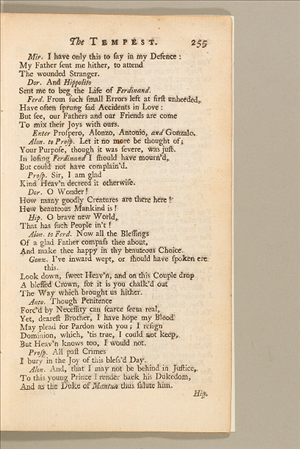 The TEMPEST. 255
Mir. I have only this to say in my Defence :
My Father ſent me hither, to attend
The wounded Stranger.
Dor. And Hippolito
Sent me to beg the Life of Ferdinand.
Ferd. From ſuch ſmall Errors left at firſt unheeded,
Have often ſprung ſad Accidents in Love :
But ſee, our Fathers and our Friends are come
To mix their Joys with ours.
Enter Proſpero, Alonzo, Antonio, and Gonzalo.
Alon. to Proſp. Let it no more be thought of;
Your Purpoſe, though it was ſevere, was juſt.
In loſing Ferdinand I ſhould have mourn'd,
But could not have complain'd.
Proſp. Sir, I am glad
Kind Heav'n decreed it otherwiſe.
Dor. O Wonder!
How many goodly Creatures are there here!
How beauteous Mankind is!
Hip. O brave new World,
That has ſuch People in't!
Alon. to Ferd. Now all the Bleſſings
Of a glad Father compaſs thee about,
And make thee happy in thy beauteous Choice.
Gonz. I've inward wept, or ſhould have ſpoken ere
this.
Look down, ſweet Heav'n, and on this Couple drop
A bleſſed Crown, for it is you chalk'd out
The Way which brought us hither.
Anto. Though Penitence
Forc'd by Neceſſity can ſcarce ſeem real,
Yet, deareſt Brother, I have hope my Blood
May plead for Pardon with you; I reſign
Dominion, which, 'tis true, I could not keep,
But Heav'n knows too, I would not.
Proſp. All paſt Crimes
I bury in the Joy of this bleſs'd Day.
Alon. And, that I may not be behind in Juſtice,
To this young Prince I render back his Dukedom,
And as the Duke of Mantua thus ſalute him.
Hip.